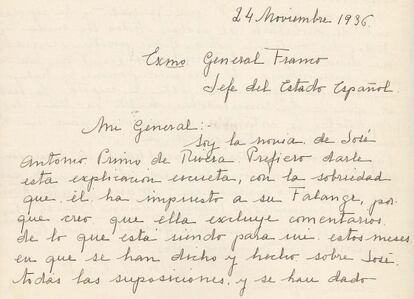 24 Noviembre 1936.
Exmo General Franco
Jefe del Estado Español.
Mi General:
Soy la novia de José
Antonio Primo de Rivera. Prefiero darle
esta explicación escueta, con la sobriedad
que él ha impuesto a su Falange, por-
que creo que ella excluye comentarios
de lo que está siendo para mi estos meses
en que se han dicho y hecho sobre José
todas las suposiciones, y se han dado